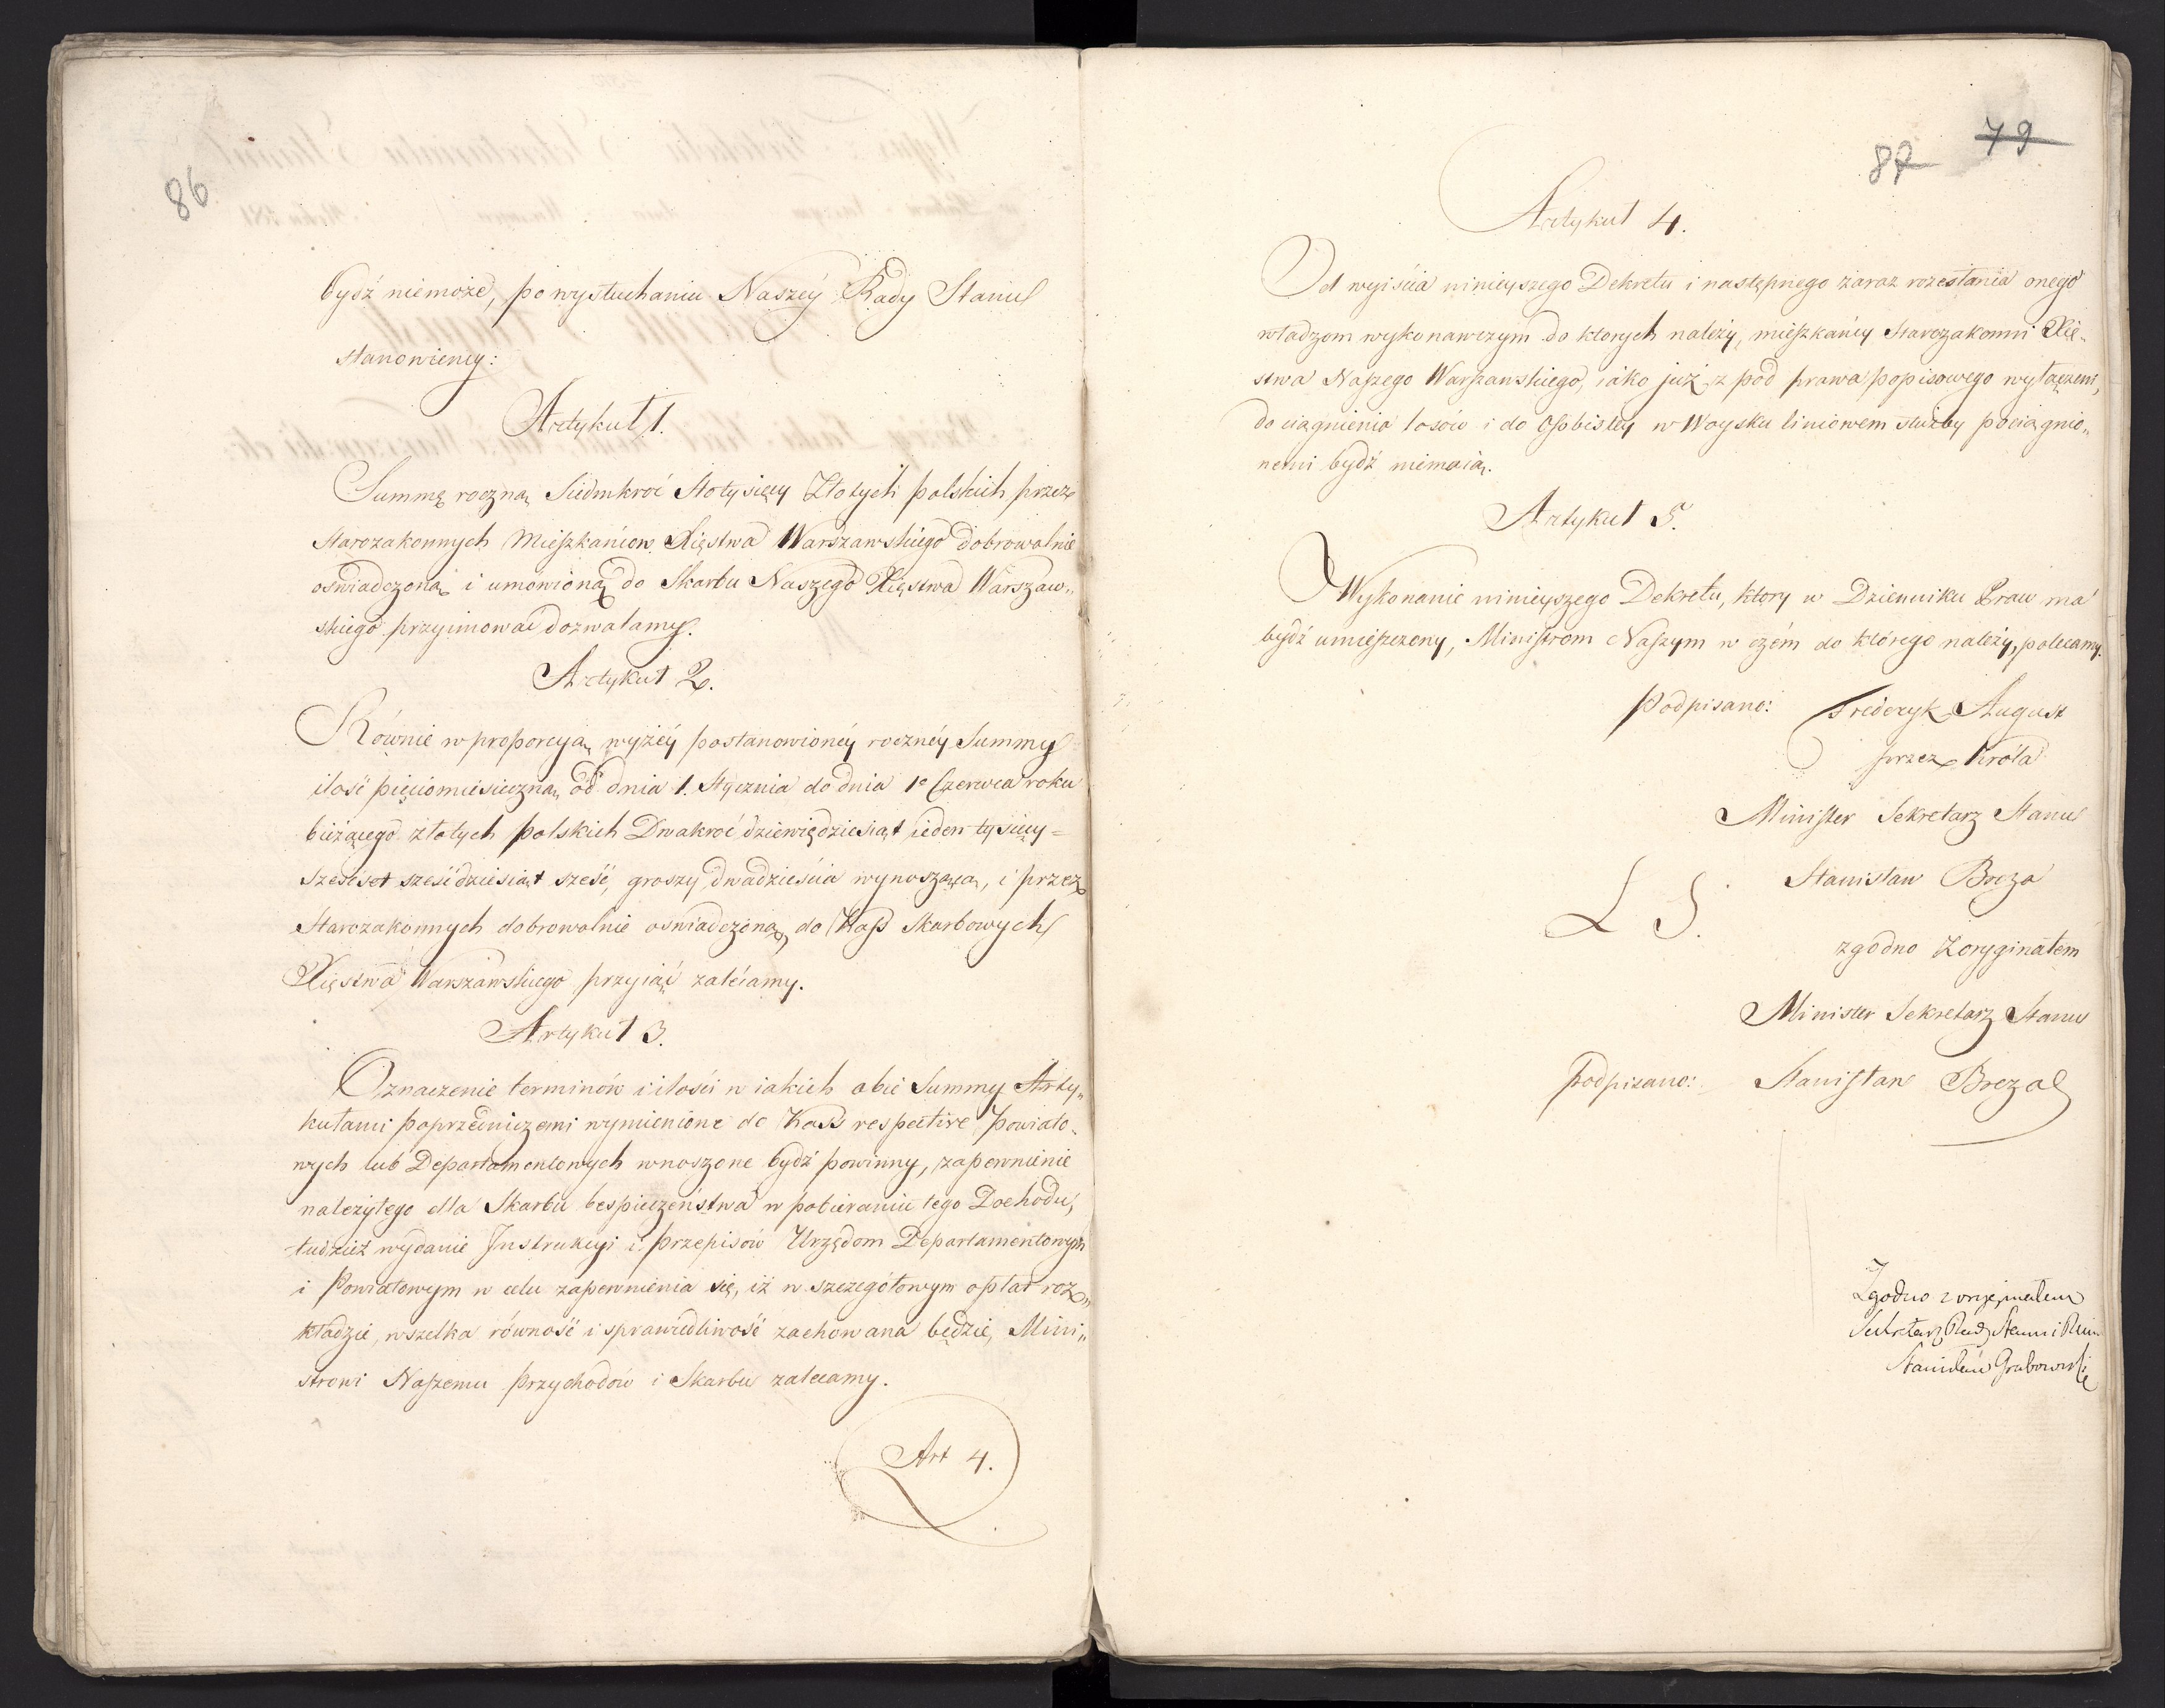 86
bydź niemoże, po wysłuchaniu Naszéy Rady Stanu
stanowiemy:
Artykuł 1.
Summę roczną Siedmkroć Stotysięcy Złotych polskich przez
Starozakonnych Mieszkańców Xięstwa Warszawskiego dobrowolnie
oświadczoną i umówioną do Skarbu Naszego Xięstwa Warszaw„
skiego przyimować dozwalamy.
Artykuł 2.
Równie w proporcyą wyżéy postanowionéy rocznéy Summy
ilość pięciomiesięczną od dnia 1. Stycznia do dnia 1o Czerwca roku
bieżącego złotych polskich Dwakroć dziewiędziesiąt ieden tysięcy =
sześćset sześćdziesiąt sześć, groszy dwadzieścia wynoszącą, i przez
Starozakonnych dobrowolnie oświadczoną, do Kass Skarbowych
Xięstwa Warszawskiego przyiąć zalécamy.
Artykuł 3.
Oznaczenie terminów i ilości w iakich obie Summy Arty„
kułami poprzedniczemi wymienione do Kass respective Powiato„
wych lub Departamentowych wnoszone bydź powinny, zapewnienie
należytego dla Skarbu bespieczeństwa w pobieraniu tego Dochodu,
tudzież wydanie Instrukcyi i przepisów Urzędom Departamentowym
i Powiatowym w celu zapewnienia się, iż w szczegółowym opłat roz„
kładzie, wszelka równość i sprawiedliwość zachowana będzie, Mini„
strowi Naszemu Przychodów i Skarbu zalecamy.
Art 4.
79
87
Artykuł 4.
Od wyiścia ninieyszego Dekretu i następnego zaraz rozesłania onego
władzom wykonawczym do ktorych należy, mieszkańcy Starozakonni Xię„
stwa Naszego Warszawskiego, iako już z pod prawa popisowego wyłączeni,
do ciągnienia losów i do Osobistey w Woysku liniowem służby pociągnio„
nemi bydź niemaią.
Artykuł 5.
Wykonanie ninieyszego Dekretu, ktory w Dzienniku Praw ma
bydź umieszczony, Ministrom Naszym w czém do którego należy, polecamy.
Podpisano: Frideryk August
przez Króla
Minister Sekretarz Stanu
Stanisław Breza
L S.
zgodno z oryginałem
Minister Sekretarz Stanu
podpisano: Stanisław Breza
Zgodno z oryginałem
Sekretarz Rady Stanu i Min
Stanisław Grabowski